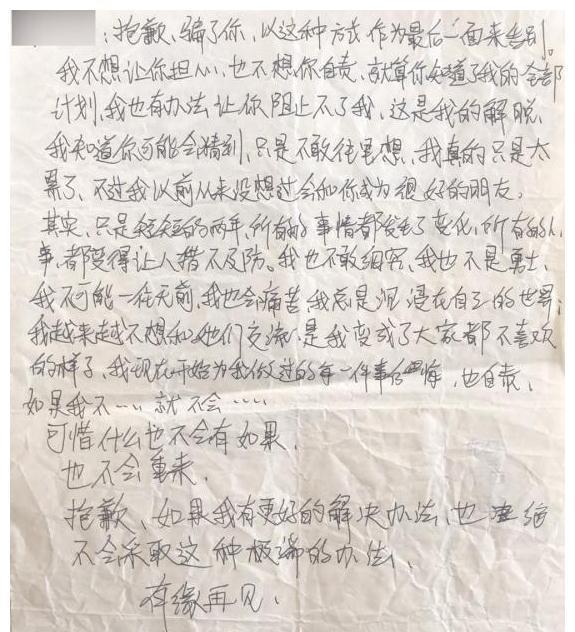 ：抱歉、骗了你，以这种方式作为最后一面来告别。
我不想让你担心、也不想你自责、就算你知道了我的全部
计划，我也有办法让你阻止不了我、这是我的解脱、
我知道你可能会猜到、只是不敢往里想、我真的只是太
累了、不过我以前从来没想过会和你成为很好的朋友、
其实、只是短短的两年，所有的事情都发生了变化，所有的人、
事、都变得让人措不及防。我也不敢细究、我也不是勇士、
我不可能一往无前、我也会痛苦、我总是沉浸在自己的世界；
我越来越不想和她们交流、是我变成了大家都不喜欢
的样子、我现在开始为我做过的每一件事后悔、也自责、
如果我不…… 就不会……
可惜什么也不会有如果、
也不会重来、
抱歉、如果我有更好的解决办法、也
不会采取这种极端的办法、
有缘再见、